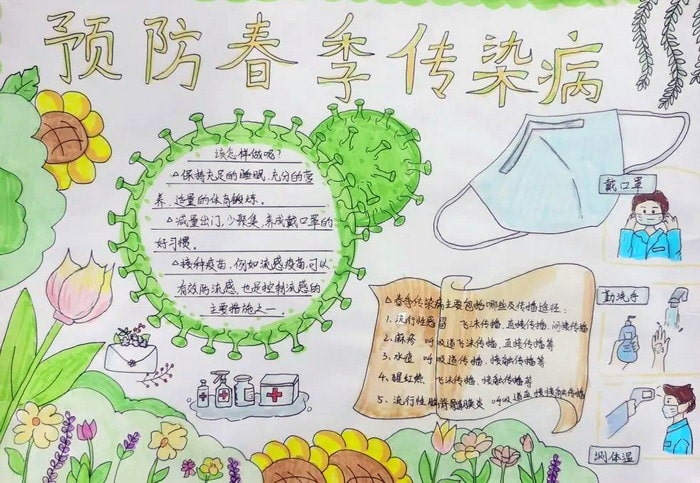 预防春季传染病
该怎样做呢?
△保持充足的睡眠、充分的营
养、适量的体育锻炼。
△减量出门,少聚集,养成戴口罩的
好习惯。
△接种疫苗,例如流感疫苗,可以
有效防流感,也是控制流感的
主要措施之一
△春季传染病主要包括哪些及传播途径:
1、流行性感冒 飞沫传播、直接传播、间接传播
2、麻疹 呼吸道传播、直接传播等
3、水痘 呼吸道传播、接触传播等
4、猩红热 飞沫传播、接触传播等
5、流行性脑脊髓膜炎 呼吸道
戴口罩
勤洗手
测体温